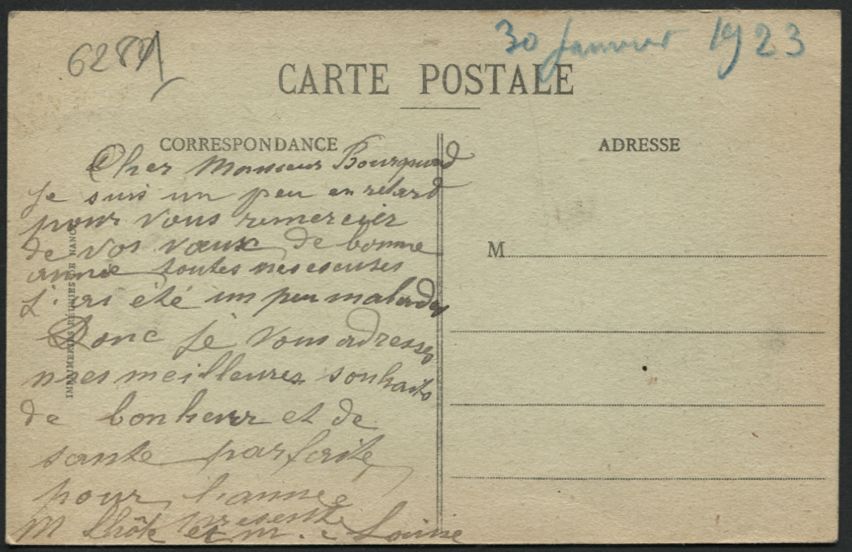 30 Janvier 1923
CARTE POSTALE
CORRESPONDANCE
ADRESSE
Cher Monsieur
Je suis un peu en retard
pour vous remercier
de vos vœux de bonne
année toutes mes excuses
J'ai été un peu malade
Donc je vous adresse
mes meilleures souhaits
de bonheur et de
sante parfaite
pour l'année
presente
M Lhôte et M. Louise
M
IMPRIMERIES REUNIES DE NANCY